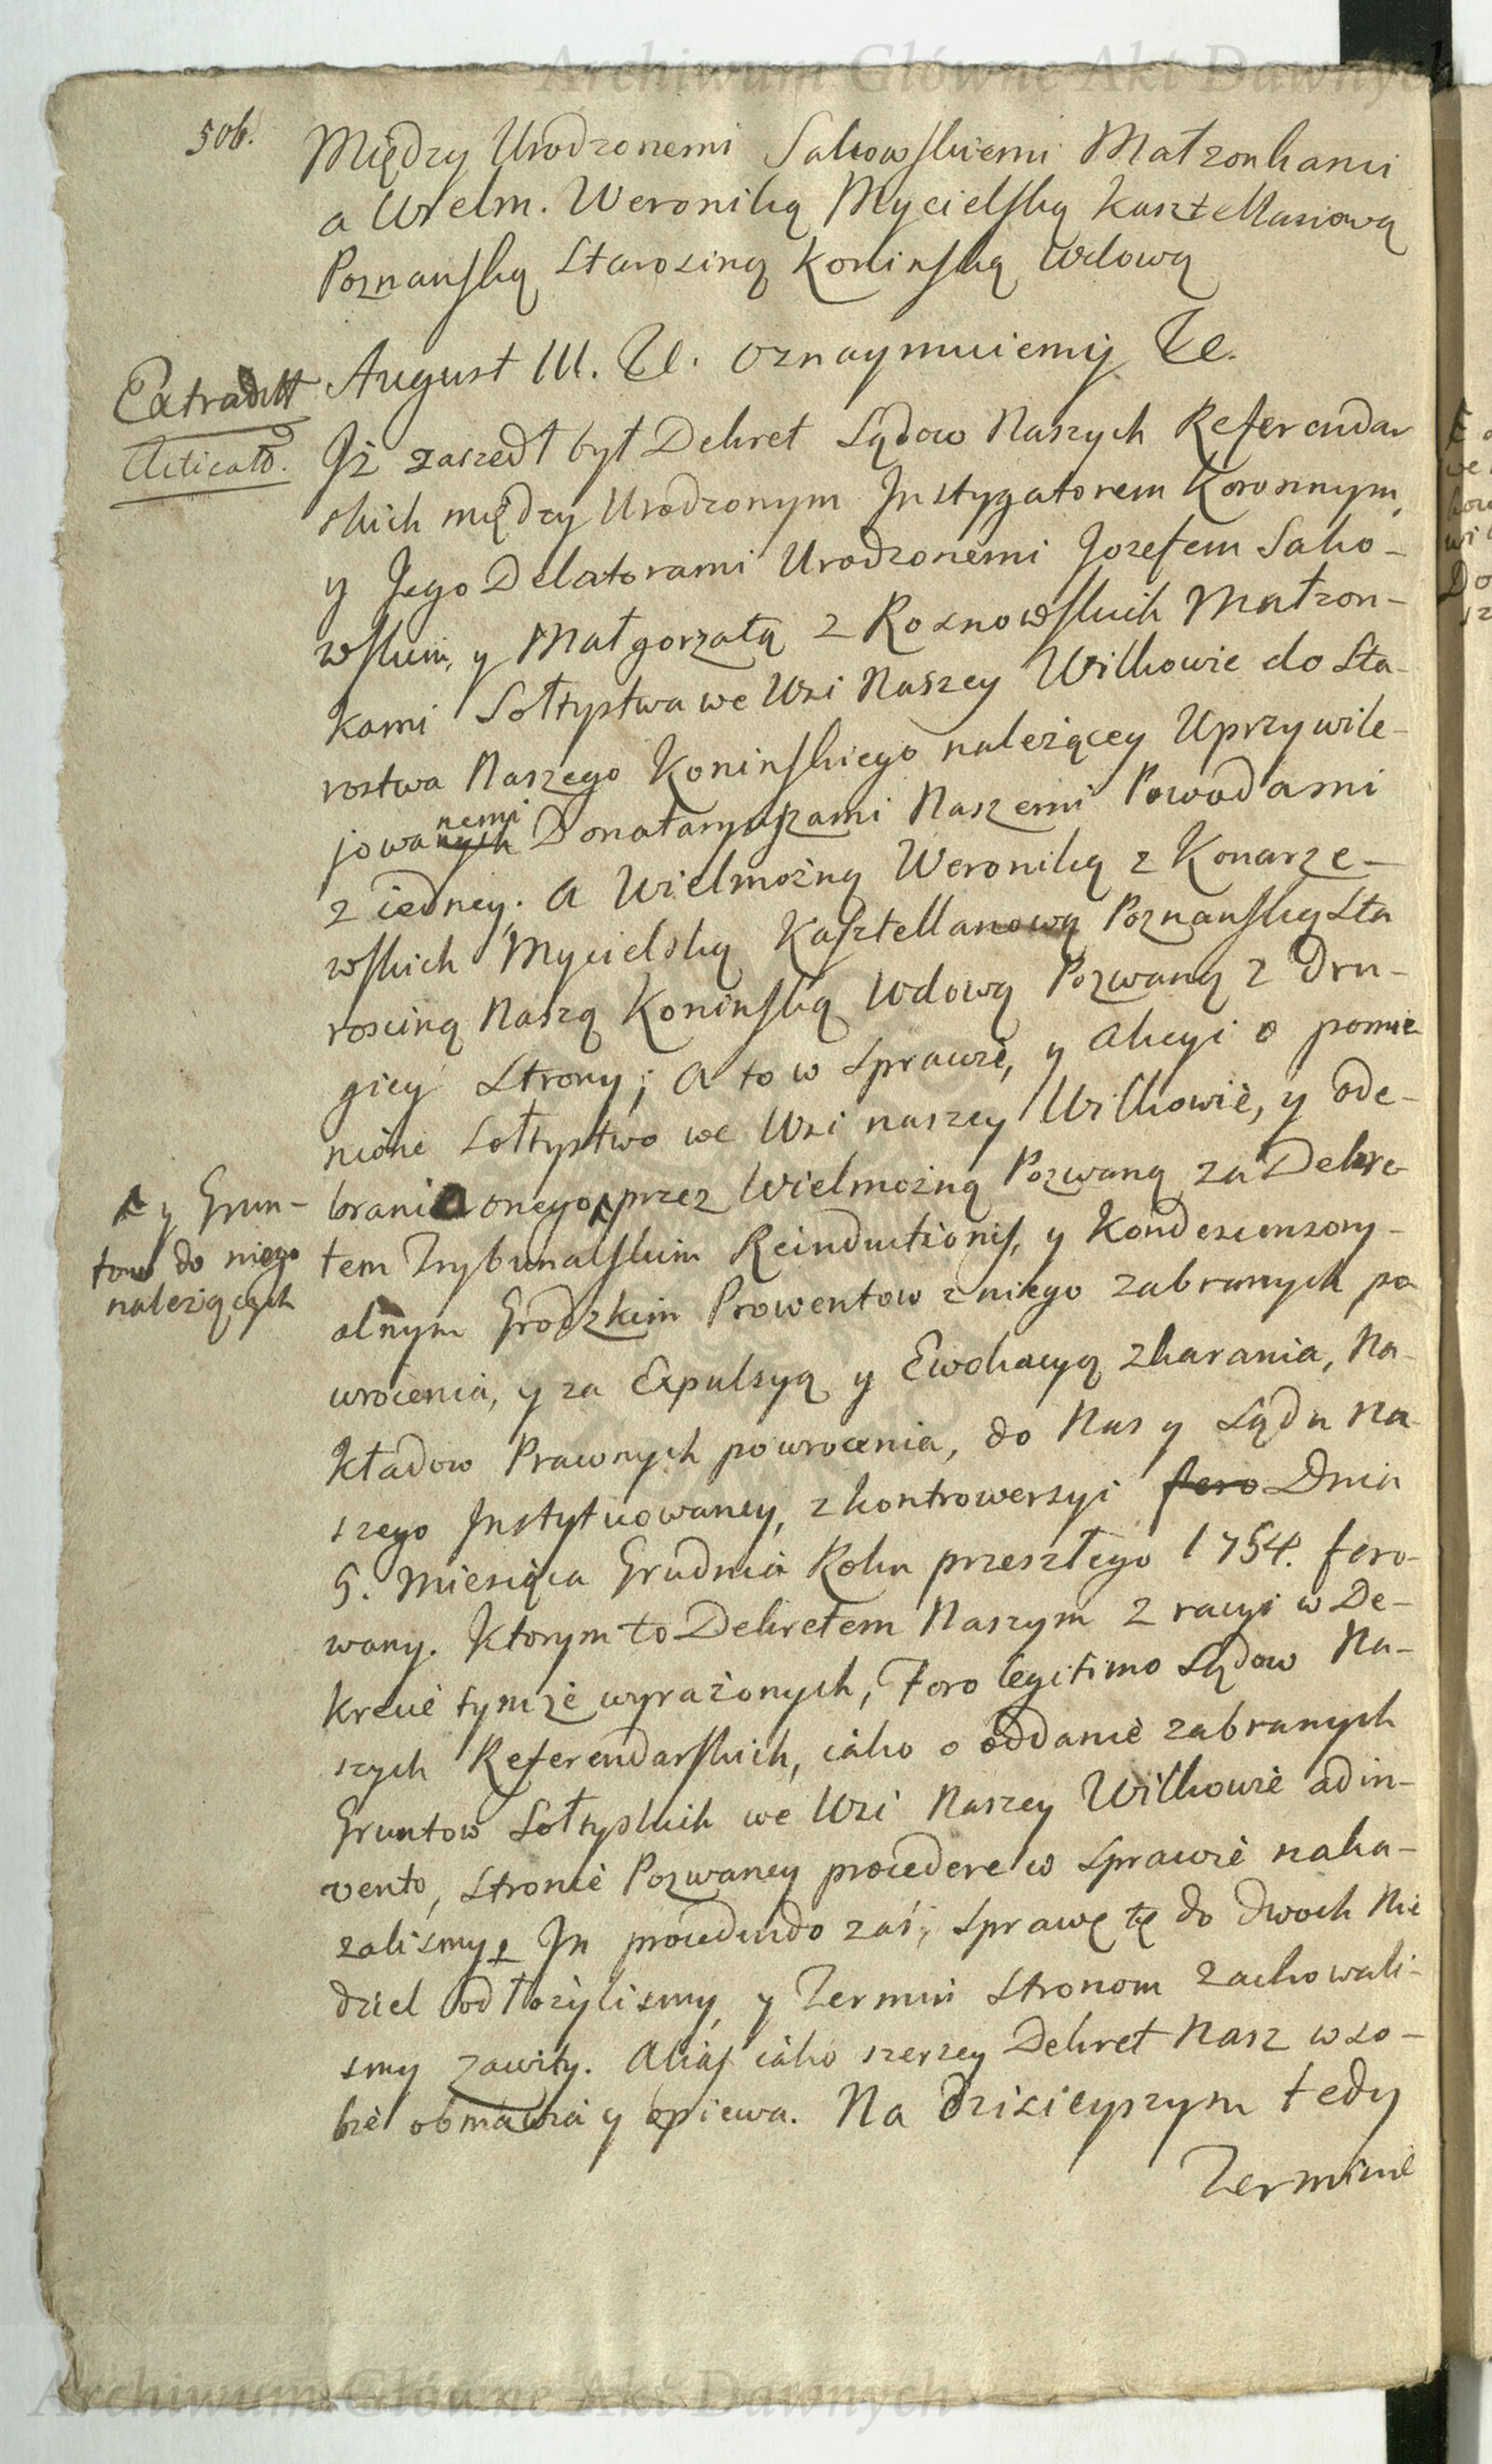 Archiwum Główne Akt Dawnych
506.
Między Urodzonemi Sakowskiemi Małzonkami
a Wielm. Weroniką Mycielską Kasztellanową
Poznanską Starosciną Koninską Wdową
August III. &c. Oznaymuiemy &c.
Extradtt
Acticatō.
Jż zaszedł był Dekret Sądow Naszych Referendar
skich między Urodzonym Jnstygatorem Koronnym,
y Jego Delatorami Urodzonemi Jozefem Sako-
wskim, y Małgorzatą z Rosnowskich Małzon-
kami Sołtystwa we Wsi Naszey Wilkowie do Sta-
rostwa Naszego Koninskiego nalezącey Uprzywile-
jowanych nemi Donataryuszami Naszemi Powodami
z iedney. A Wielmożną Weroniką z Konarze-
wskich Mycielską Kasztellanową Poznanską Sta
rosciną Naszą Koninską Wdową Pozwaną z Dru-
giey Strony; A to w Sprawie, y Akcyi o pomie
nione Sołtystwo we Wsi naszey Wilkowie, y ode-
brania onego, przez Wielmożną Pozwaną za Dekre-
y Grun-
tow do niego
nalezących
tem Trybunalskim Reinductionis, y Kondescensory-
alnym Grodzkim Prowentow z niego zabranych po
wrocenia, y za Expulsyą y Ewokacyą zkarania, Na-
kładow Prawnych powrocenia, do Nas y Sądu Na
szego Jnstytuowaney, z kontrowersyi fero Dnia
5. Miesiąca Grudnia Roku przeszłego 1754. fero-
wany. Ktorym to Dekretem Naszym z racyi w De-
krecie tymże wyrażonych, Foro legitimo Sądow Na-
szych Referendarskich, iako o oddanie zabranych
Gruntow Sołtyskich we Wsi Naszey Wilkowie adin-
vento, Stronie Pozwaney procedere w Sprawie naka-
zalismy. Jn procedendo zaś, Sprawę tę do dwoch Nie
dziel odłożylismy, y Termin Stronom zachowali-
smy zawity. Alias iako szerzey Dekret Nasz w so-
bie obmawia y opiewa. Na dzisieyszym tedy
Terminie
Archiwum Główne Akt Dawnych